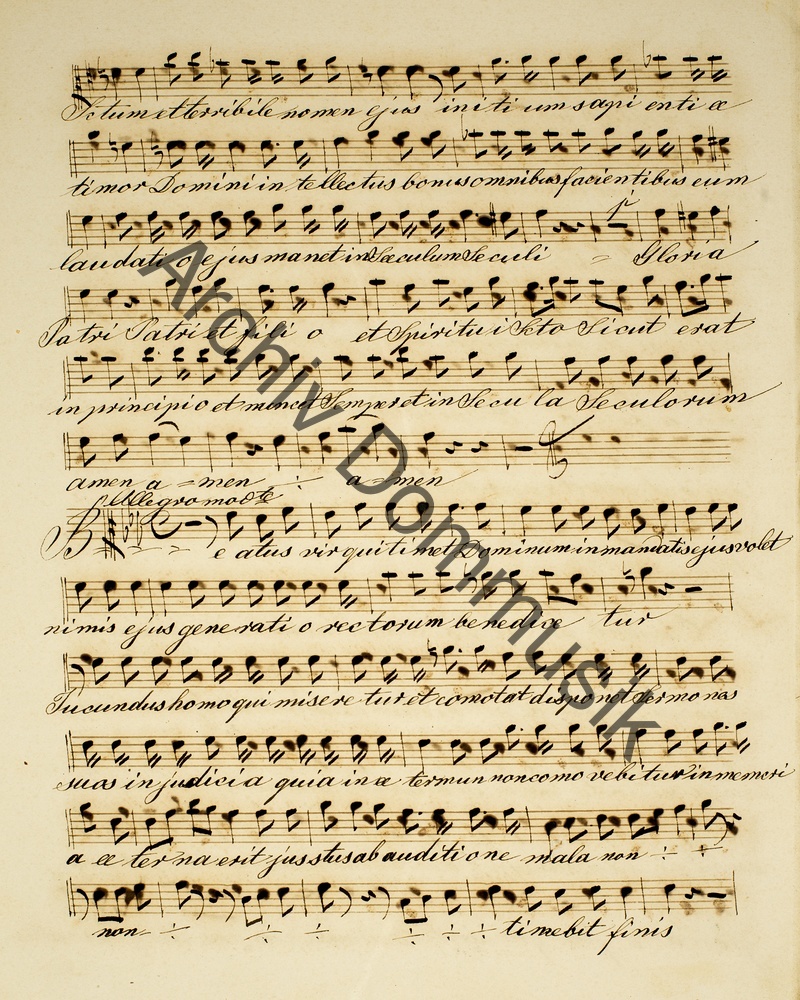 Sctum et terribile nomen ejus initi um sapi enti æ
timor Domini in tellectus bonus omnibus facientibus eum
laudati o ejus manet in Sæculum Seculi = Gloria
Patri Patri et fili o et Spiritu i Scto Sicut erat
in principi o et nunc et Semper et in Secu la Seculorum
amen a = men ÷ a = men
Allegro modte
B e atus vir qui timet Dominum in mandatis ejus volet
nimis ejus generati o rectorum benedice tur
Jucundus homo qui misere tur et comotat disponet Sermones
suos in judicia quia in æ termun non como vebitur in memori
a æ ter na erit jusstus ab auditi one mala non ÷ ÷
non ÷ ÷ ÷ ÷ ÷ ÷ timebit finis
Archiv Dommusik